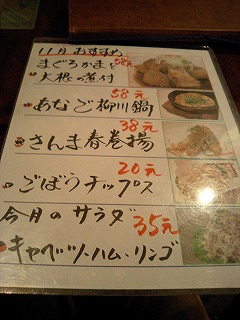 11月おすすめ
まぐろかまと
58元
大根の煮付
58元
あなご柳川鍋
38元
さんま春巻揚
20元
ごぼうチップス
今月のサラダ
35元
キャベツ・ハム・リンゴ